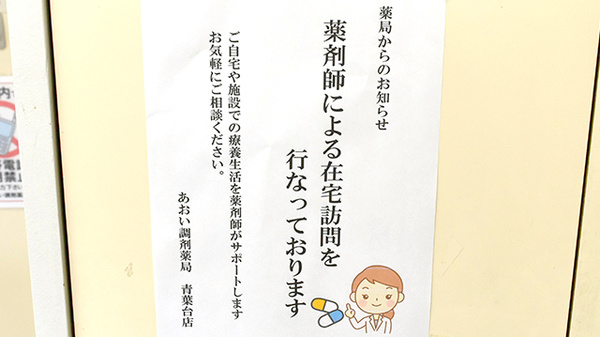 薬局からのお知らせ
薬剤師による在宅訪問を
行なっております
ご自宅や施設での療養生活を薬剤師がサポートします
お気軽にご相談ください。
あおい調剤薬局 青葉台店
内